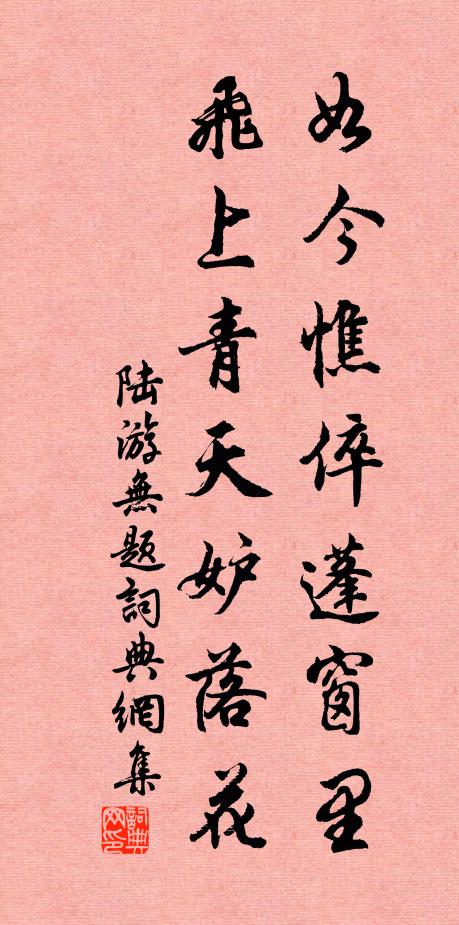 如今憔倅蓬窗里
飛上青天妒落花
陆游無题詞典網集
詞典网印